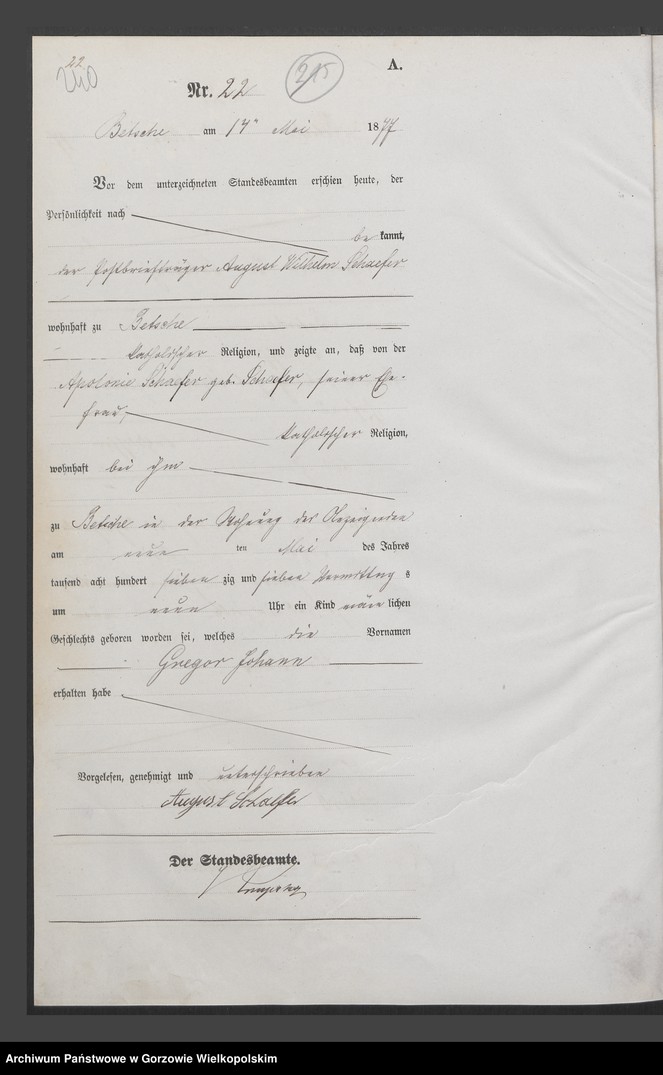 22
240
215
A.
Nr. 22
Betsche am 14ten Mai 1877
Vor dem unterzeichneten Standesbeamten erschien heute, der
Persönlichkeit nach
be kannt,
der Postbriefträger August Wilhelm Schaefer
wohnhaft zu Betsche
katholischer Religion, und zeigte an, daß von der
Apolonie Schaefer geb. Schaefer, seiner Ehe-
frau,
katholischer Religion,
wohnhaft bei ihm
zu Betsche in der Wohnung des Anzeigenden
am neun ten Mai des Jahres
tausend acht hundert sieben zig und sieben Vormittag s
um neun Uhr ein Kind männ lichen
Geschlechts geboren worden sei, welches die Vornamen
Gregor Johann
erhalten habe
Vorgelesen, genehmigt und unterschrieben
August Schaefer
Der Standesbeamte.
Archiwum Państwowe w Gorzowie Wielkopolskim